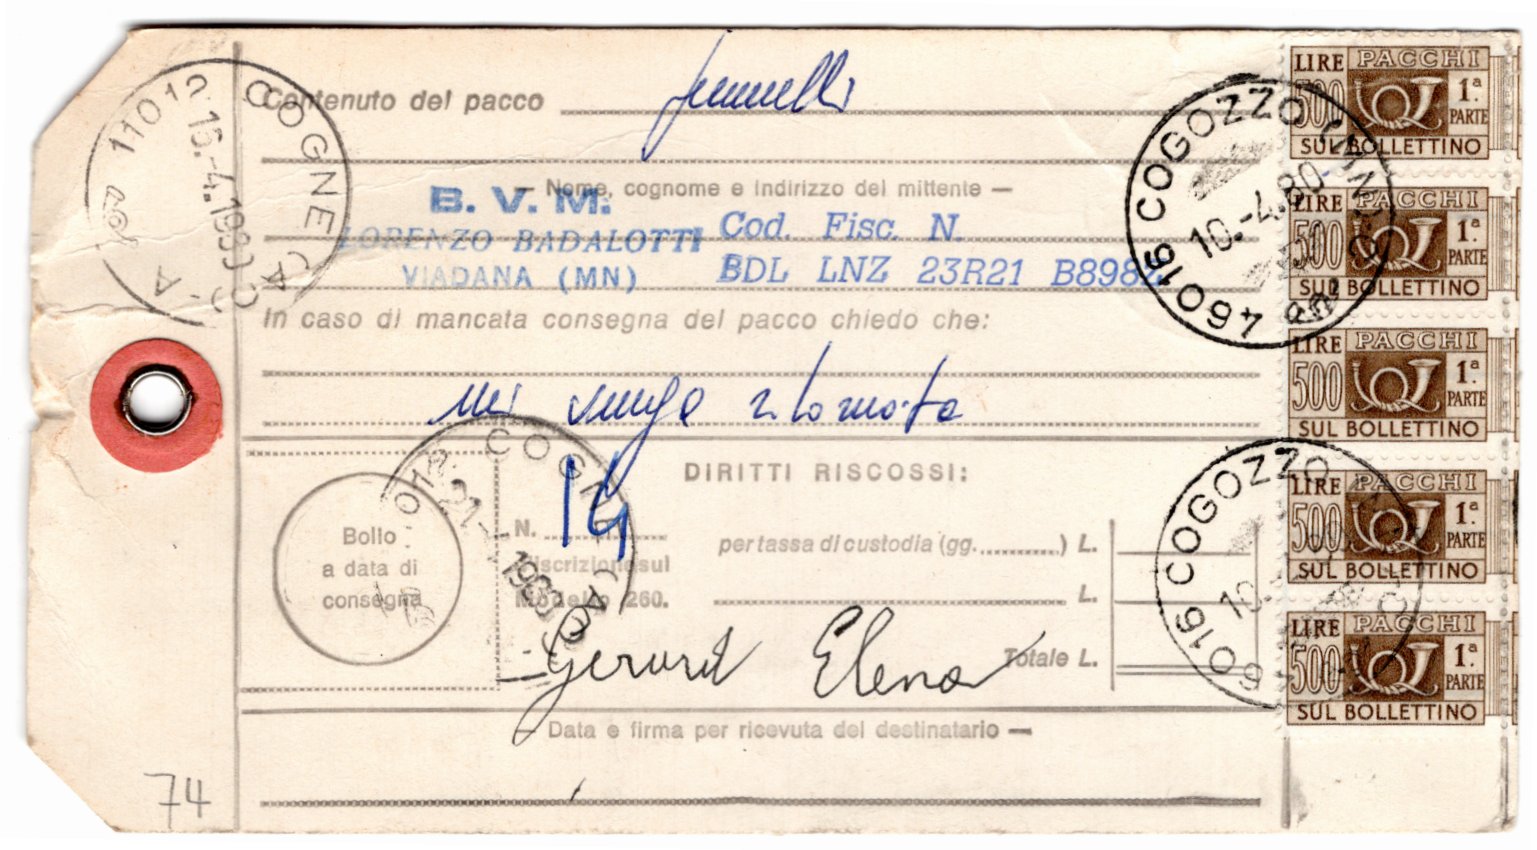 11012 COGNE (AO) A
15.-4.1980
Contenuto del pacco
— Nome, cognome e indirizzo del mittente —
B. V. M.
LORENZO BADALOTTI
VIADANA (MN)
Cod. Fisc. N.
BDL LNZ 23R21 B898
In caso di mancata consegna del pacco chiedo che:
mi venga ritornato
Bollo
a data di
consegna
COGNE (AO)
N. 14
d'iscrizione sul
Modello 260.
DIRITTI RISCOSSI:
per tassa di custodia (gg. ) L.
L.
Totale L.
Elena
Data e firma per ricevuta del destinatario —
74
46016 COGOZZO (MN)
10.-4.80
6016 COGOZZO
10.
LIRE PACCHI
500 1ª. PARTE
SUL BOLLETTINO
LIRE
500 1ª. PARTE
SUL BOLLETTINO
LIRE PACCHI
500 1ª. PARTE
SUL BOLLETTINO
LIRE PACCHI
500 1ª. PARTE
SUL BOLLETTINO
LIRE PACCHI
500 1ª. PARTE
SUL BOLLETTINO